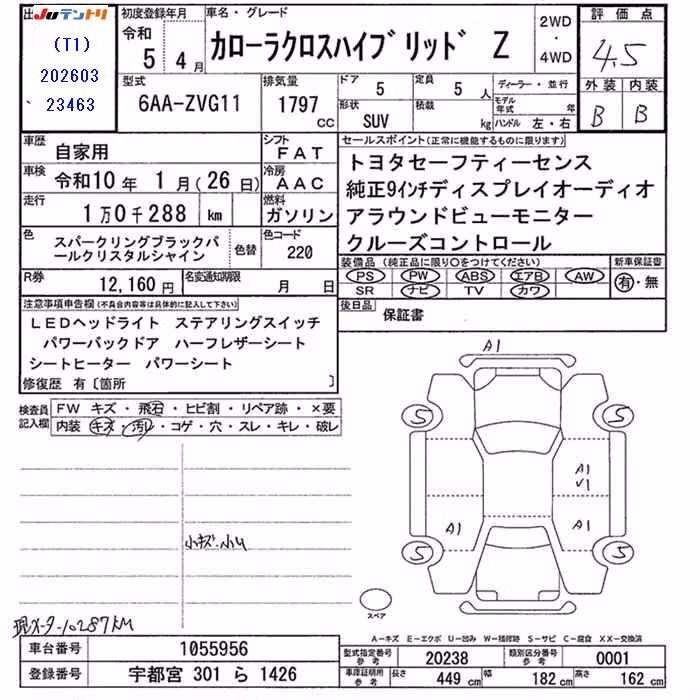 出 JUテントリ
(T1)
202603
23463
初度登録年月
令和
5 4月
車名・グレード
カローラクロスハイブリッド Z
2WD
・
4WD
評価点
4.5
外装 内装
B B
型式
6AA-ZVG11
排気量
1797 CC
ドア
5
定員
5 人
形状
SUV
積載
kg
ディーラー・並行
モデル年式 年
ハンドル 左・右
車歴
自家用
シフト
FAT
車検
令和10年 1月(26日)
冷房
AAC
走行
1万0千288 km
燃料
ガソリン
色
スパークリングブラックパ
ールクリスタルシャイン
色替
色コード
220
R券
12,160円
名変通知期限
月 日
セールスポイント(正常に機能するものに限ります)
トヨタセーフティーセンス
純正9インチディスプレイオーディオ
アラウンドビューモニター
クルーズコントロール
装備品(純正品に限り○をつけてください)
PS PW ABS エアB AW
SR ナビ TV カワ
新車保証書
有・無
後日品
保証書
注意事項申告欄(不具合内容等は具体的に記入して下さい)
LEDヘッドライト ステアリングスイッチ
パワーバックドア ハーフレザーシート
シートヒーター パワーシート
修復歴 有〔箇所 〕
検査員
記入欄
FW キズ・飛石・ヒビ割・リペア跡・×要
内装 キズ・汚レ・コゲ・穴・スレ・キレ・破レ
小キズ.小U
現メーター10287KM
A1
5 5
A1
V1
A1 A1
5 5
スペア
A-キズ E-エクボ U-凹み W-補修跡 S-サビ C-腐食 XX-交換済
車台番号
1055956
登録番号
宇都宮 301 ら 1426
型式指定番号
参考
20238
類別区分番号
参考
0001
車庫証明用
参考
長さ 449 cm
幅 182 cm
高さ 162 cm